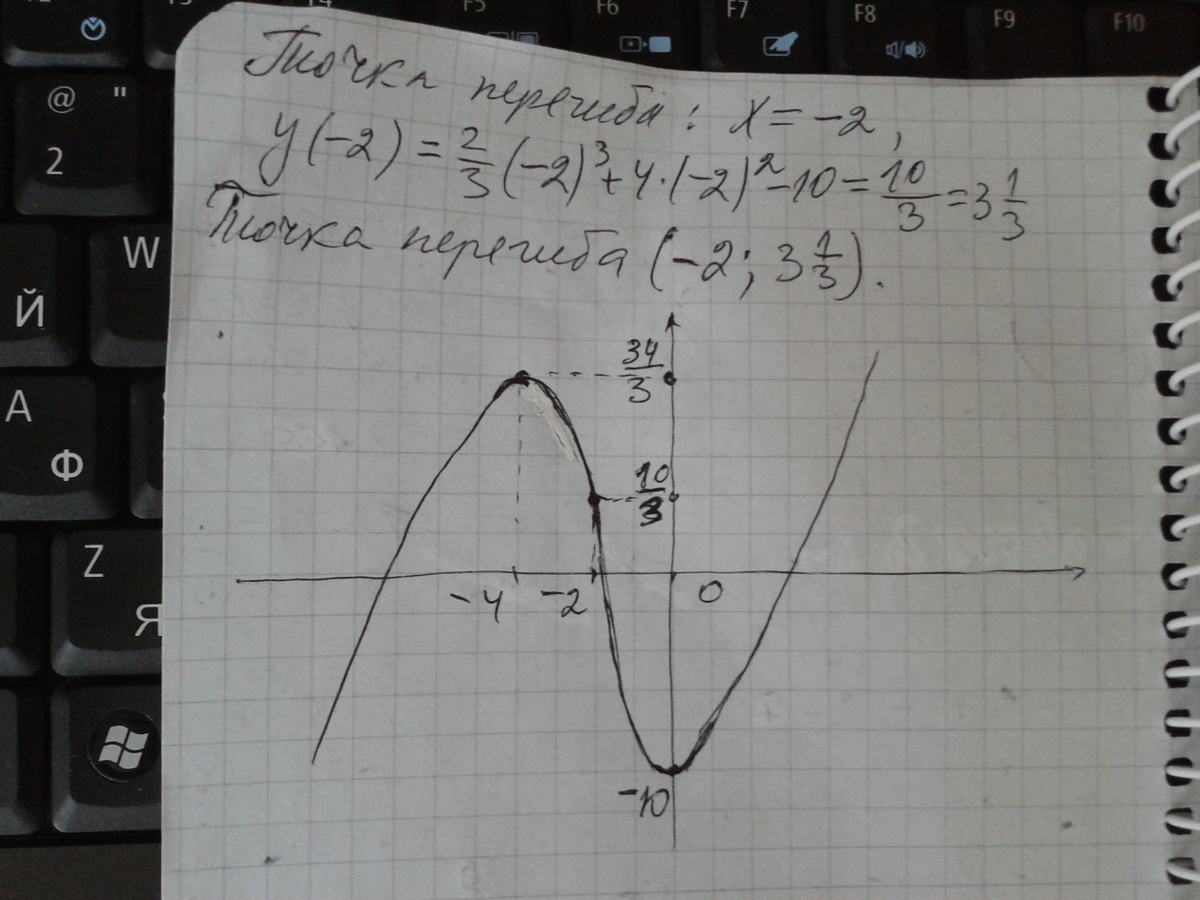 F5 F6 F7 F8 F9 F10
@ "
2
W
Й
A
Ф
Z
Я
Точка перегиба: x = -2,
y(-2) = 2/3 (-2)³ + 4·(-2)² - 10 = 10/3 = 3 1/3
Точка перегиба (-2; 3 1/3).
34/3
10/3
-4 -2 0
-10